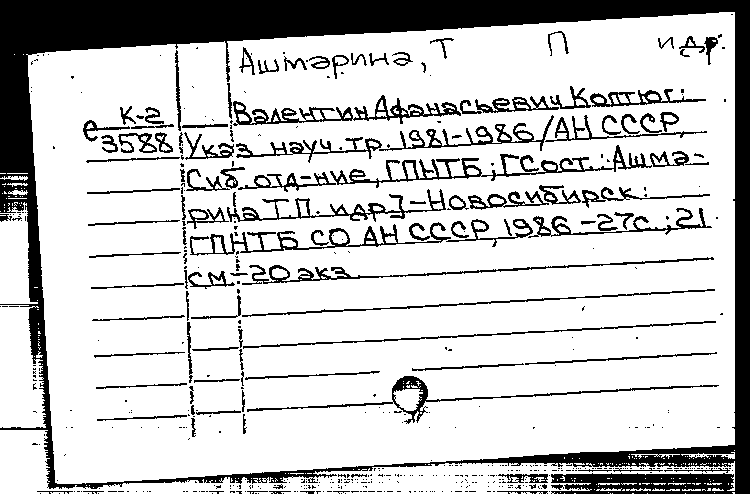 Ашмарина, Т П и др.
К-2 Валентин Афанасьевич Коптюг:
е 3588 Указ. науч. тр. 1981-1986/АН СССР,
Сиб. отд-ние, ГПНТБ; [Сост.: Ашма-
рина Т.П. и др.]-Новосибирск:
ГПНТБ СО АН СССР, 1986.-27с.; 21
см.-20 экз.